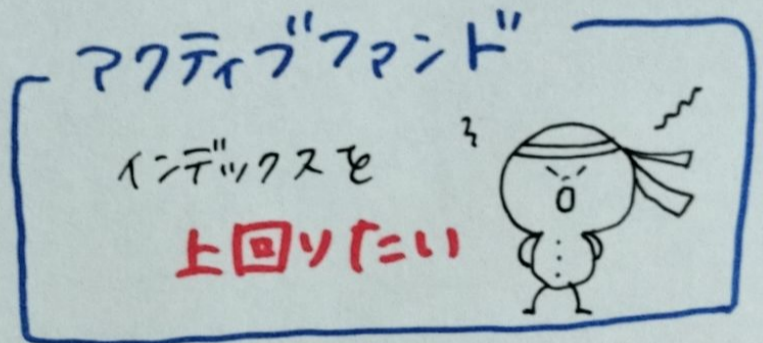 アクティブファンド
インデックスを
上回りたい